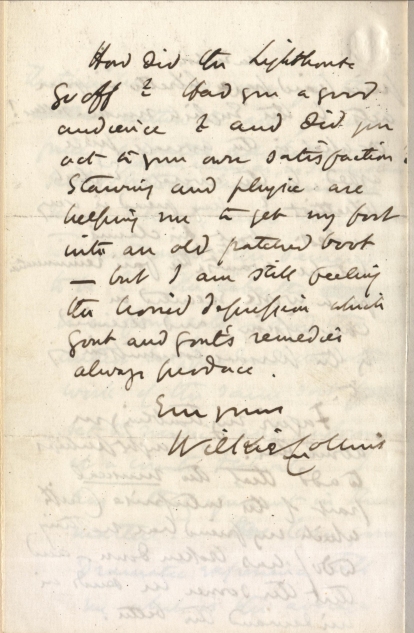 How did the Lighthouse
go off? Had you a good
audience? and did you
act to your own satisfaction?
Starving and physic are
helping me to get my foot
into an old patched boot
— but I am still feeling
the horrid depression which
gout and gout's remedies
always produce.
Ever yours
Wilkie Collins